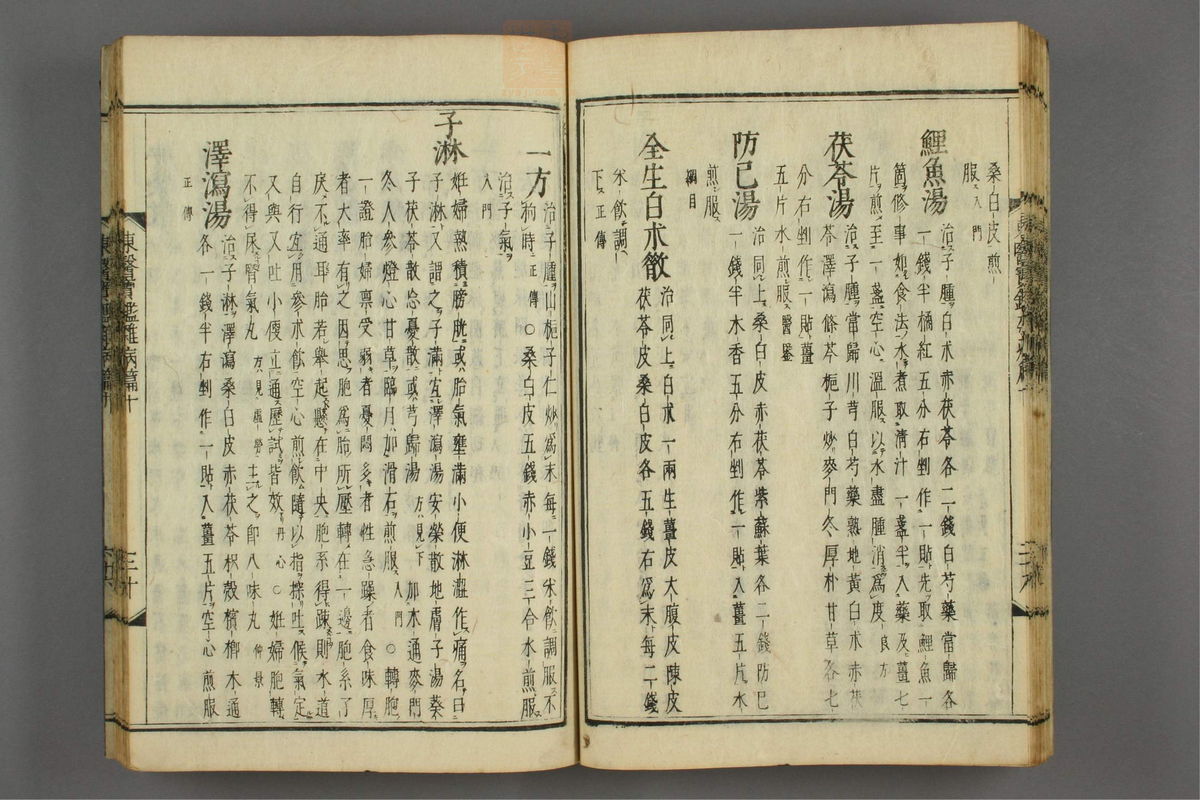 桑白皮煎
服入門
鯉魚湯
治子腫白朮赤茯苓各二錢白芍藥當歸各
一錢半橘紅五分右剉作一貼先取鯉魚一
箇修事如食法水煮取清汁一盞半入藥及薑七
片煎至一盞空心溫服以水盡腫消爲度良方
茯苓湯
治子腫當歸川芎白芍藥熟地黃白朮赤茯
苓澤瀉條芩梔子炒麥門冬厚朴甘草各七
分右剉作一貼薑
五片水煎服醫鑒
防己湯
治同上桑白皮赤茯苓紫蘇葉各二錢防己
一錢半木香五分右剉作一貼入薑五片水
煎服
綱目
全生白朮散
治同上白朮一兩生薑皮大腹皮陳皮
茯苓皮桑白皮各五錢右爲末每二錢
米飲調
下正傳
一方
治子腫山梔子仁炒爲末每一錢米飲調服不
拘時正傳○桑白皮五錢赤小豆三合水煎服
治子氣
入門
子淋
姙婦熱積膀胱或胎氣壅滿小便淋澁作痛名曰
子淋又謂之子滿宜澤瀉湯安榮散地膚子湯葵
子茯苓散忘憂散或芎歸湯方見下加木通麥門
冬人參燈心甘草臨月加滑石煎服入門○轉胞
一證胎婦禀受弱者憂悶多者性急躁者食味厚
者大率有之因思胞爲胎所壓轉在一邊胞系了
戾不通耳胎若擧起懸在中央胞系得踈則水道
自行宜用參朮飲空心煎飲隨以指探吐候氣定
又與又吐小便立通歷試皆效丹心○姙婦胞轉
不得尿腎氣丸方見虛勞主之卽八味丸仲景
澤瀉湯
治子淋澤瀉桑白皮赤茯苓枳殼檳榔木通
各一錢半右剉作一貼入薑五片空心煎服
正傳
東醫寶鑑雜病篇十
三十